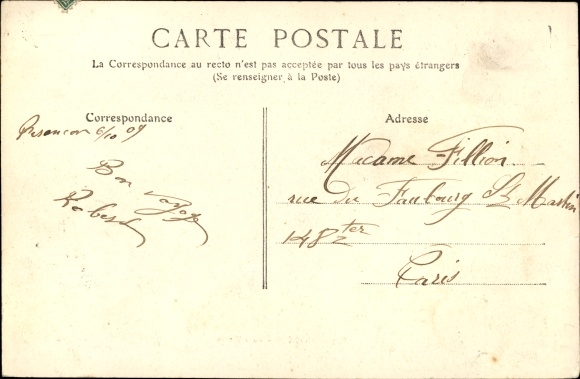 CARTE POSTALE
La Correspondance au recto n'est pas acceptée par tous les pays étrangers
(Se renseigner à la Poste)
Correspondance
Besancon 6/10 09
Bon voyage
Robert
Adresse
Madame Fillion
rue du Faubourg St Martin
148 ter
Paris